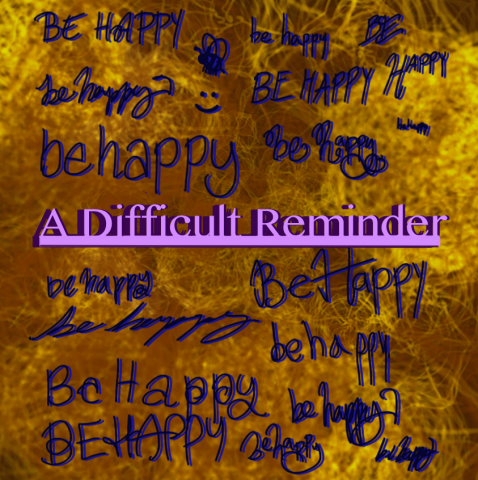 BE HAPPY
be happy
BE HAPPY
be happy
BE HAPPY
be happy
be happy
be Happy
A Difficult Reminder
be happy
Be Happy
be happy
be happy
Be Happy
be happy
BE HAPPY
Be happy
be happy